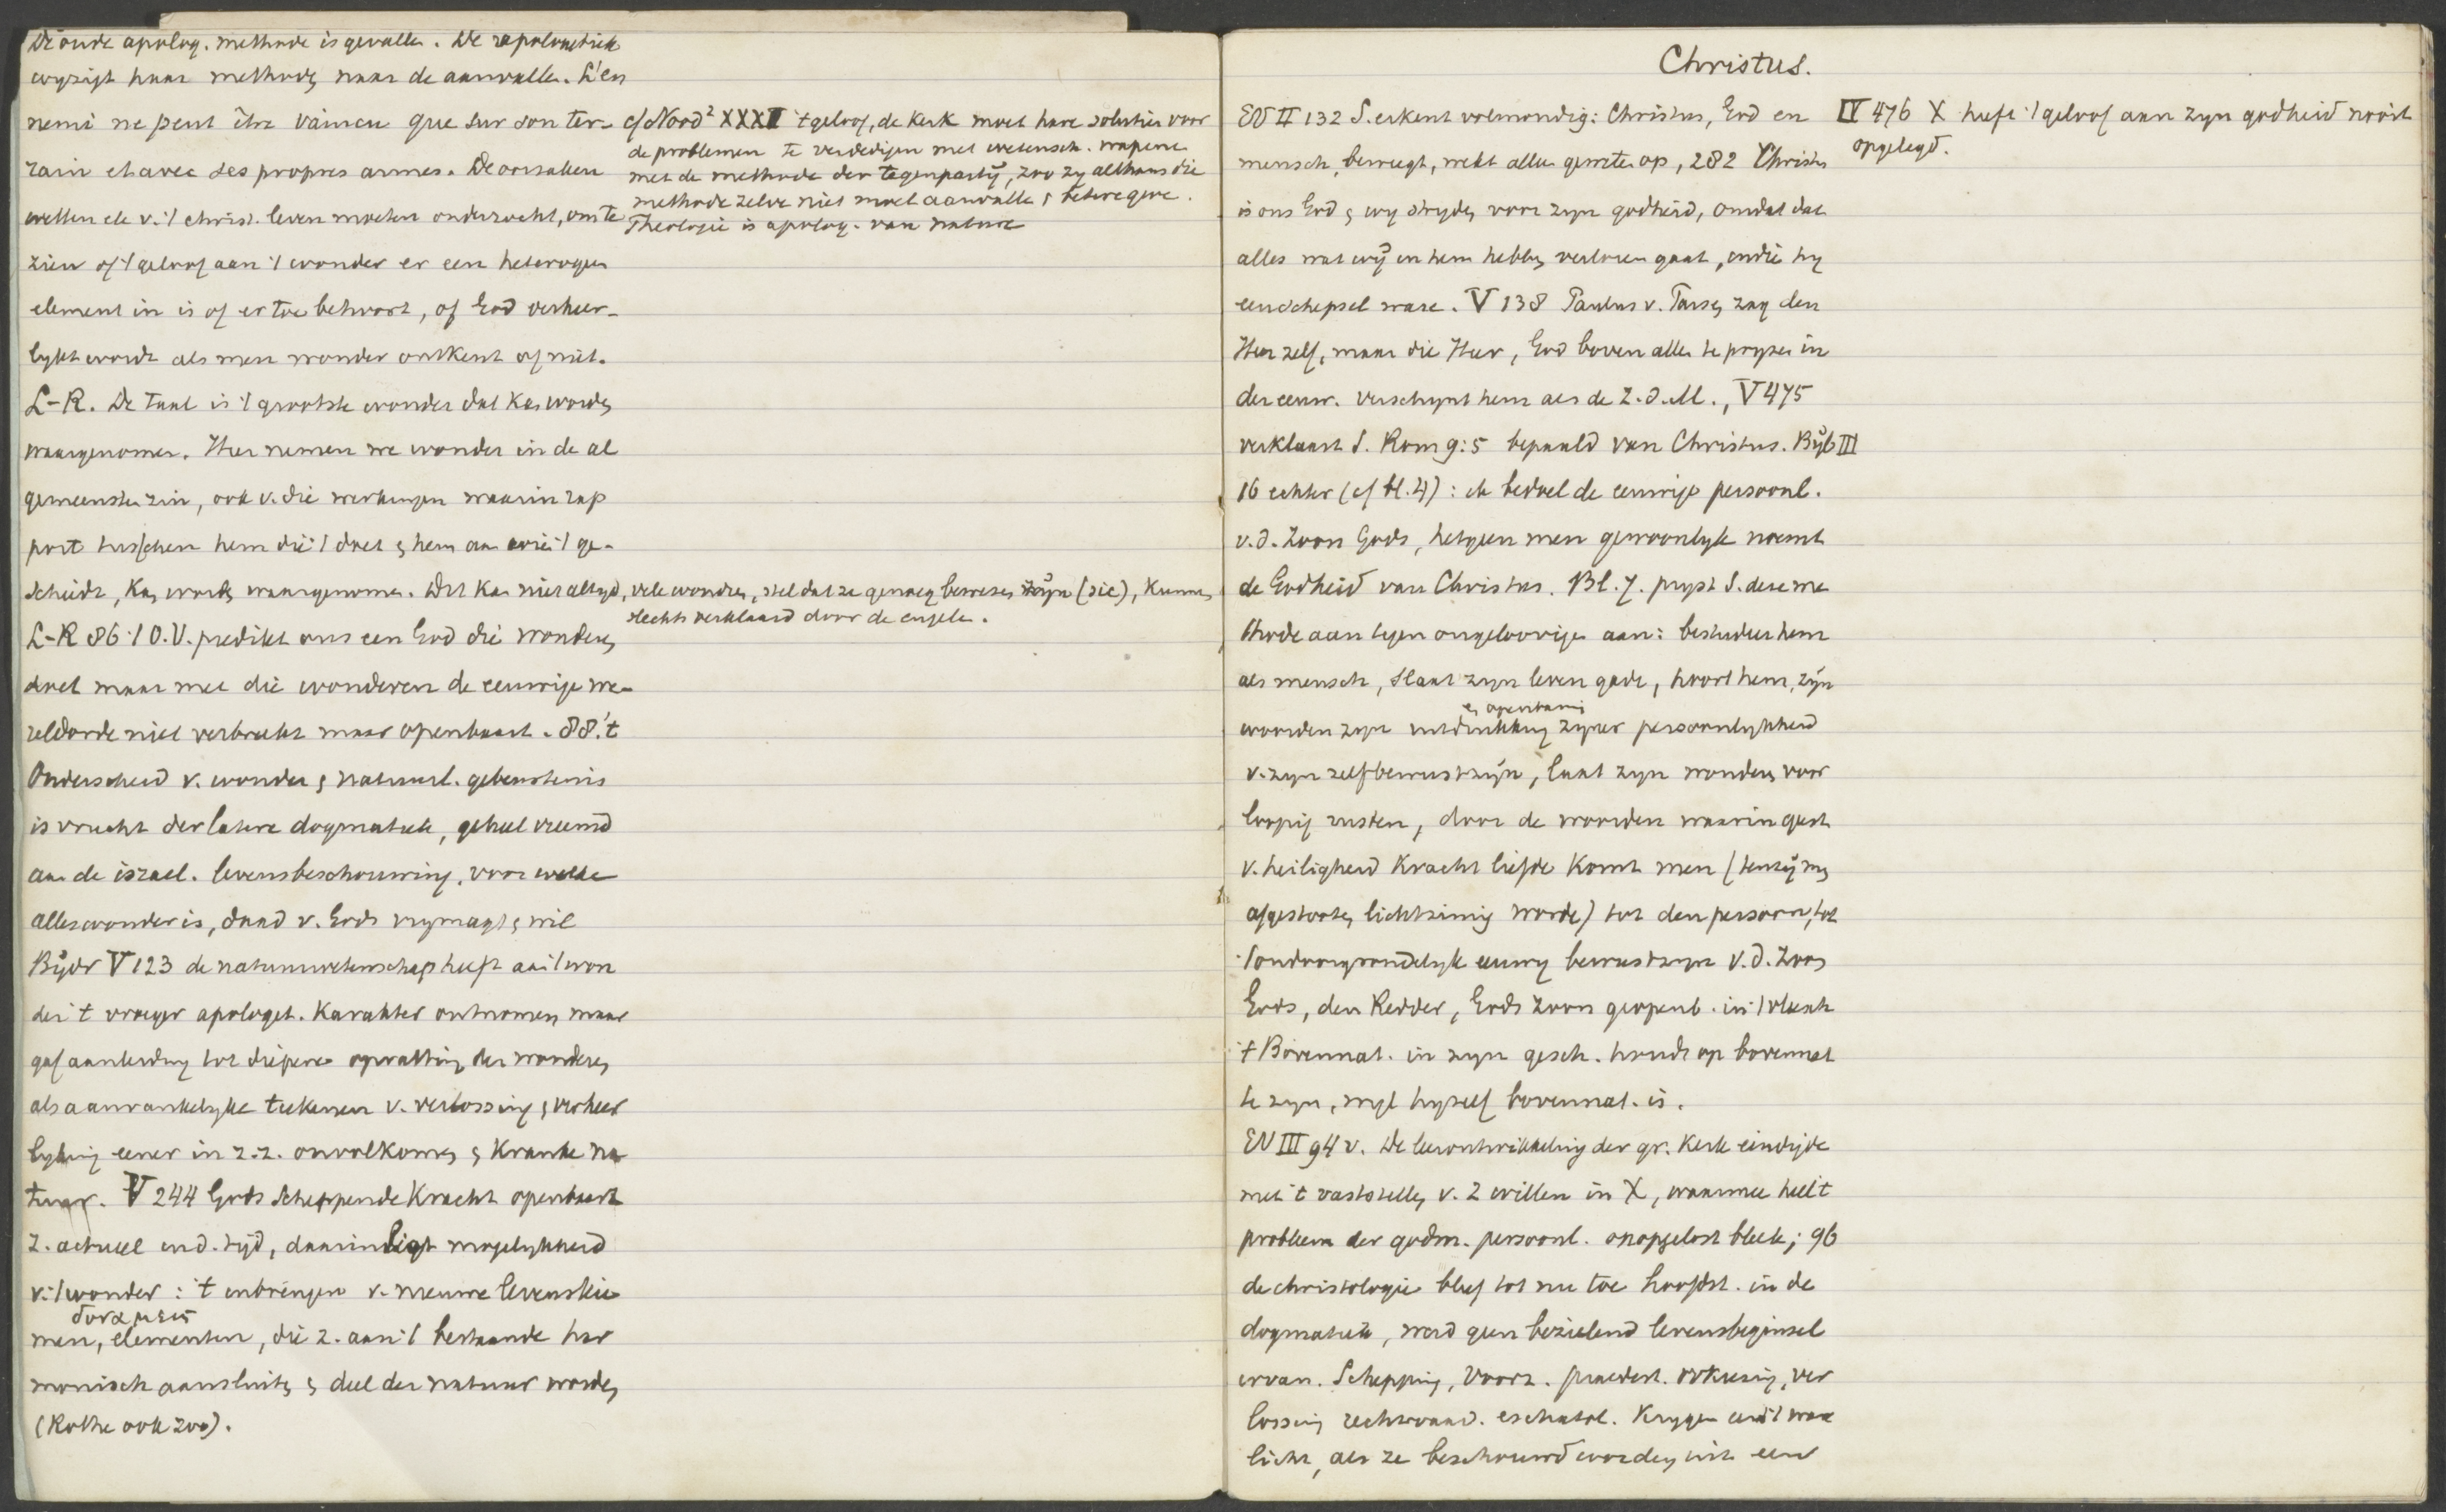 De oude apolog. methode is gevallen. De apologetiek
wyzigt haar methode naar de aanvallen. L'en
nemi ne peut être vaincu que sur son ter-
rain et avec ses propres armes. De oorzaken
wetten etc v. 't christ. leven moeten onderzocht, om te
zien of 't geloof aan 't wonder er een heterogeen
element in is of er toe behoort, of God verheer-
lykt wordt als men wonder ontkent of niet.
L-R. De taal is 't grootste wonder dat kan worden
waargenomen. Hier nemen we wonder in de al
gemeensten zin, ook v. die werkingen waarin rap
port tusschen hem die 't doet & hem aan wie 't ge-
scheidt, kan worden waargenomen. Dit kan niet altyd,
L-R 86 't O.V. predikt ons een God die wonderen
doet maar met die wonderen de eeuwige we-
reldorde niet verbreekt maar openbaart. 88. 't
Onderscheid v. wonder & natuurl. gebeurtenis
is vrucht der latere dogmatiek, geheel vreemd
aan de israel. levensbeschouwing, voor welke
alles wonder is, daad v. Gods vrymagt & wil
Bijdr V 123 de natuurwetenschap heeft aan 't won
der 't vroeger apologet. karakter ontnomen maar
gaf aanleiding tot diepere opvatting der wonderen
als aanvankelyke teekenen v. verlossing & verheer
lyking eener in z.z. onvolkomen & kranke na
tuur. V 244 Gods scheppende kracht openbaart
z. actueel in d. tijd, daarin ligt mogelykheid
v. 't wonder : 't inbrengen v. nieuwe levenskie
δυναμεις
men, elementen, die z. aan 't bestaande har
monisch aansluiten & deel der natuur worden
(Rothe ook zoo).
cf Nood² XXXII 't geloof, de kerk moet hare soluties voor
de problemen te verdedigen met wetensch. wapenen
met de methode der tegenpartij, zoo zy althans die
methode zelve niet moet aanvallen & betere geve.
Theologie is apolog. van nature
vele wonderen, stel dat ze genoeg bewezen zijn (sic), kunnen
slechts verklaard door de engelen.
Christus.
EV II 132 S. erkent volmondig: Christus, God en
mensch, beweegt, wekt alle geweten op, 282 Christus
is ons God & wy stryden voor zyn godheid, omdat dat
alles wat wij in hem hebben verloren gaat, indien hy
een schepsel ware. V 138 Paulus v. Tarsen zag den
Heer zelf, maar die Heer, God boven allen te pryzen in
der eeuw. verschynt hem als de Z.d.M., V 475
verklaart S. Rom 9:5 bepaald van Christus. Bijb III
16 echter (cf bl. 4) : ik bedoel de eeuwige persoonl.
v.d. Zoon Gods, hetgeen men gewoonlyk noemt
de Godheid van Christus. Bl. 7. pryst S. deze me
thode aan tegen ongeloovigen aan: bestudeer hem
als mensch, slaat zyn leven gade, hoort hem, zijn
& openbaring
woorden zyn uitdrukking zyner persoonlykheid
v. zyn zelfbewustzijn, laat zyn wonderen voor
loopig rusten, door de woorden waarin geest
v. heiligheid kracht liefde komt men (tenzij men
afgestooten lichtzinnig worde) tot den persoon, tot
't ondoorgrondelyk eeuwig bewustzyn v.d. Zoon
Gods, den Redder, Gods Zoon geopenb. in 't vleesch
't Bovennat. in zyn gesch. houdt op bovennat
te zyn, wyl hyzelf bovennat. is.
EV III 94 v. De leerontwikkeling der gr. kerk eindigde
met 't vaststellen v. 2 willen in X, waarmee heel 't
probleem der godm. persoonl. onopgelost bleek; 96
de christologie bleef tot nu toe hoofdst. in de
dogmatiek, werd geen bezielend levensbeginsel
ervan. Schepping, Voorz. praedest. verkiezing, ver
lossing rechtvaard. eschatol. krygen eerst 't ware
licht, als ze beschouwd worden uit een
IV 476 X heeft 't geloof aan zyn godheid nooit
opgelegd.